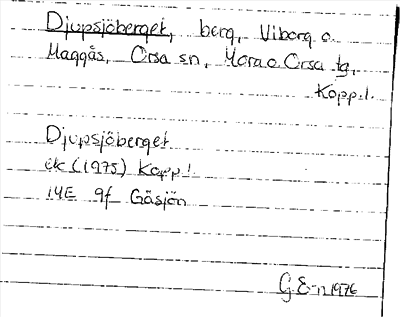 Djupsjöberget, berg, Viborg o.
Maggås, Orsa sn, Mora o Orsa tg,
Kopp.l.
Djupsjöberget
ek (1975) Kopp l
14E 9f Gåsjön
G E-n 1976